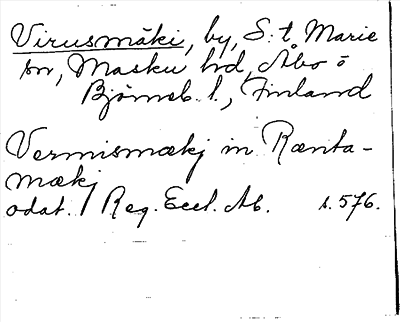 Virusmäki, by, S:t Marie
sn, Masku hd, Åbo o
Björneb. l., Finland
Vermismækj in Rænta-
mækj
odat. Reg. Eccl. Ab. s. 576.